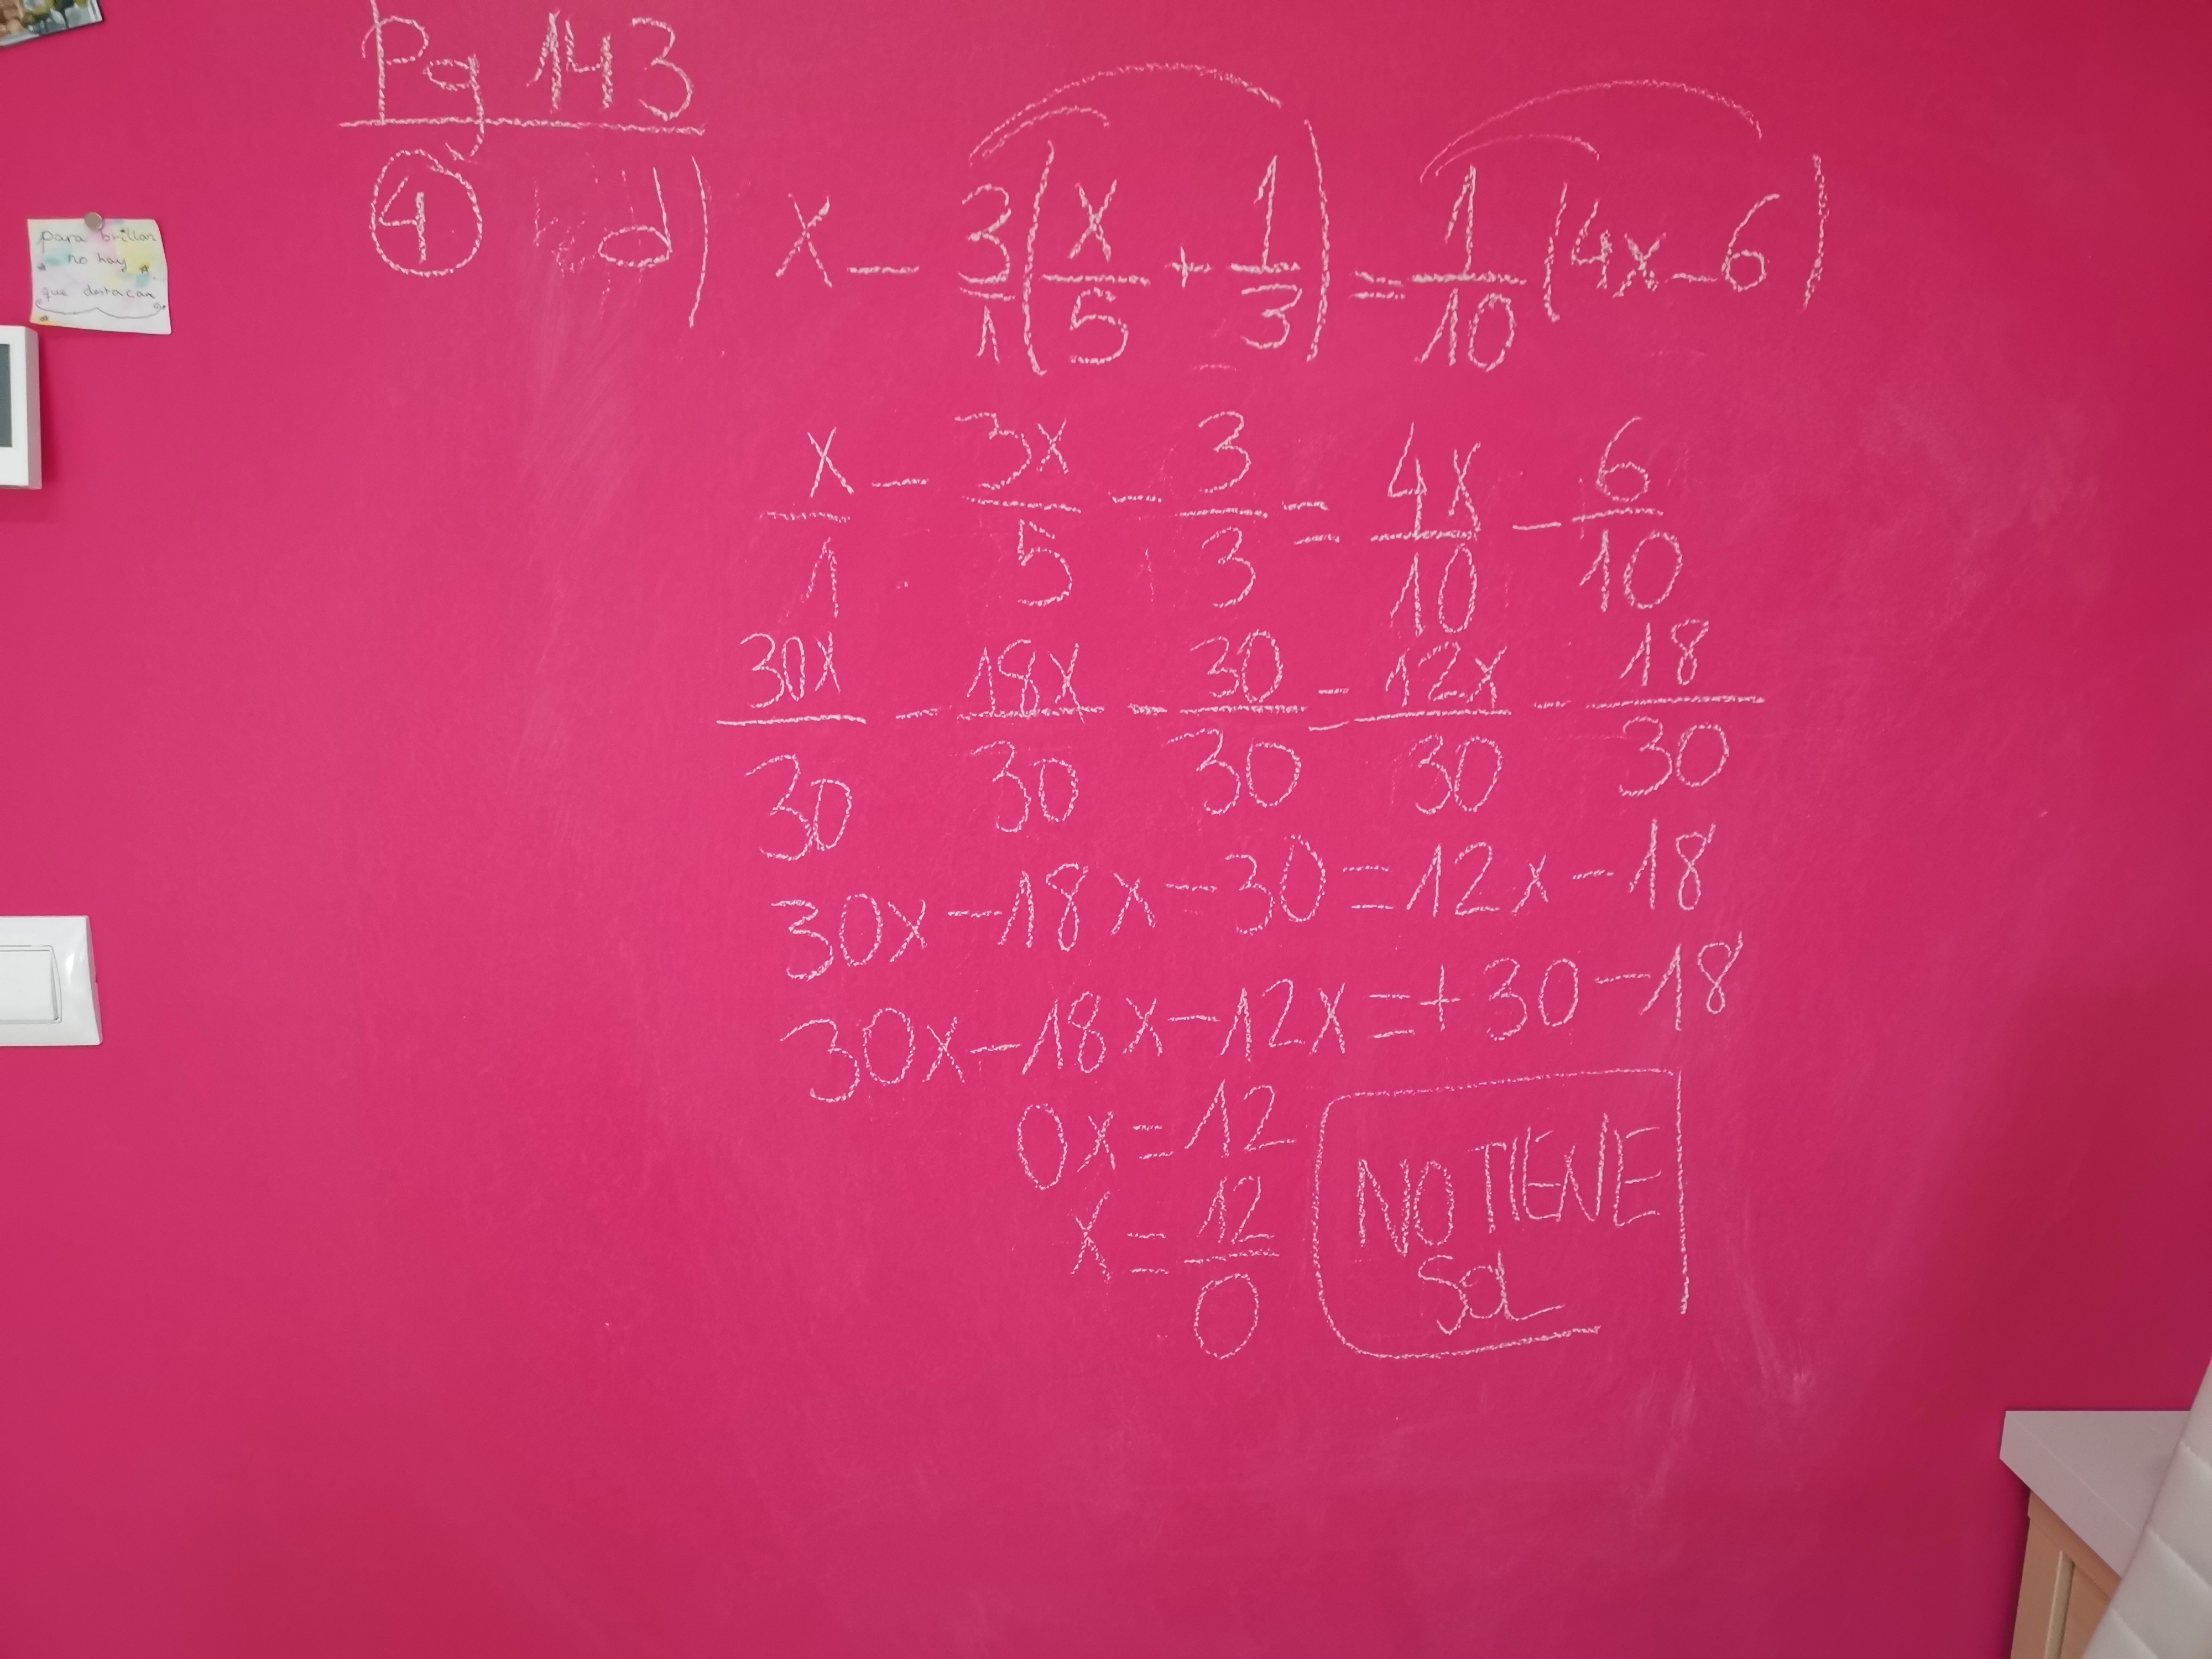 Pg 143
4 d) x - 3/1 (x/5 + 1/3) = 1/10 (4x - 6)
x/1 - 3x/5 - 3/3 = 4x/10 - 6/10
30x/30 - 18x/30 - 30/30 = 12x/30 - 18/30
30x - 18x - 30 = 12x - 18
30x - 18x - 12x = + 30 - 18
0x = 12
x = 12/0
NO TIENE
Sol
para brillar
no hay
que destacar